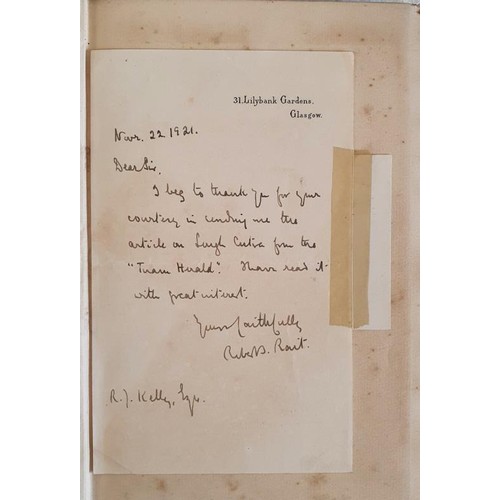 31. Lilybank Gardens.
Glasgow.
Novr. 22 1921.
Dear Sir,
I beg to thank you for your
courtesy in sending me the
article on Lough Cutra from the
"Tuam Herald". I have read it
with great interest.
Yours faithfully
Robert S. Rait.
R. J. Kelly, Esqr.